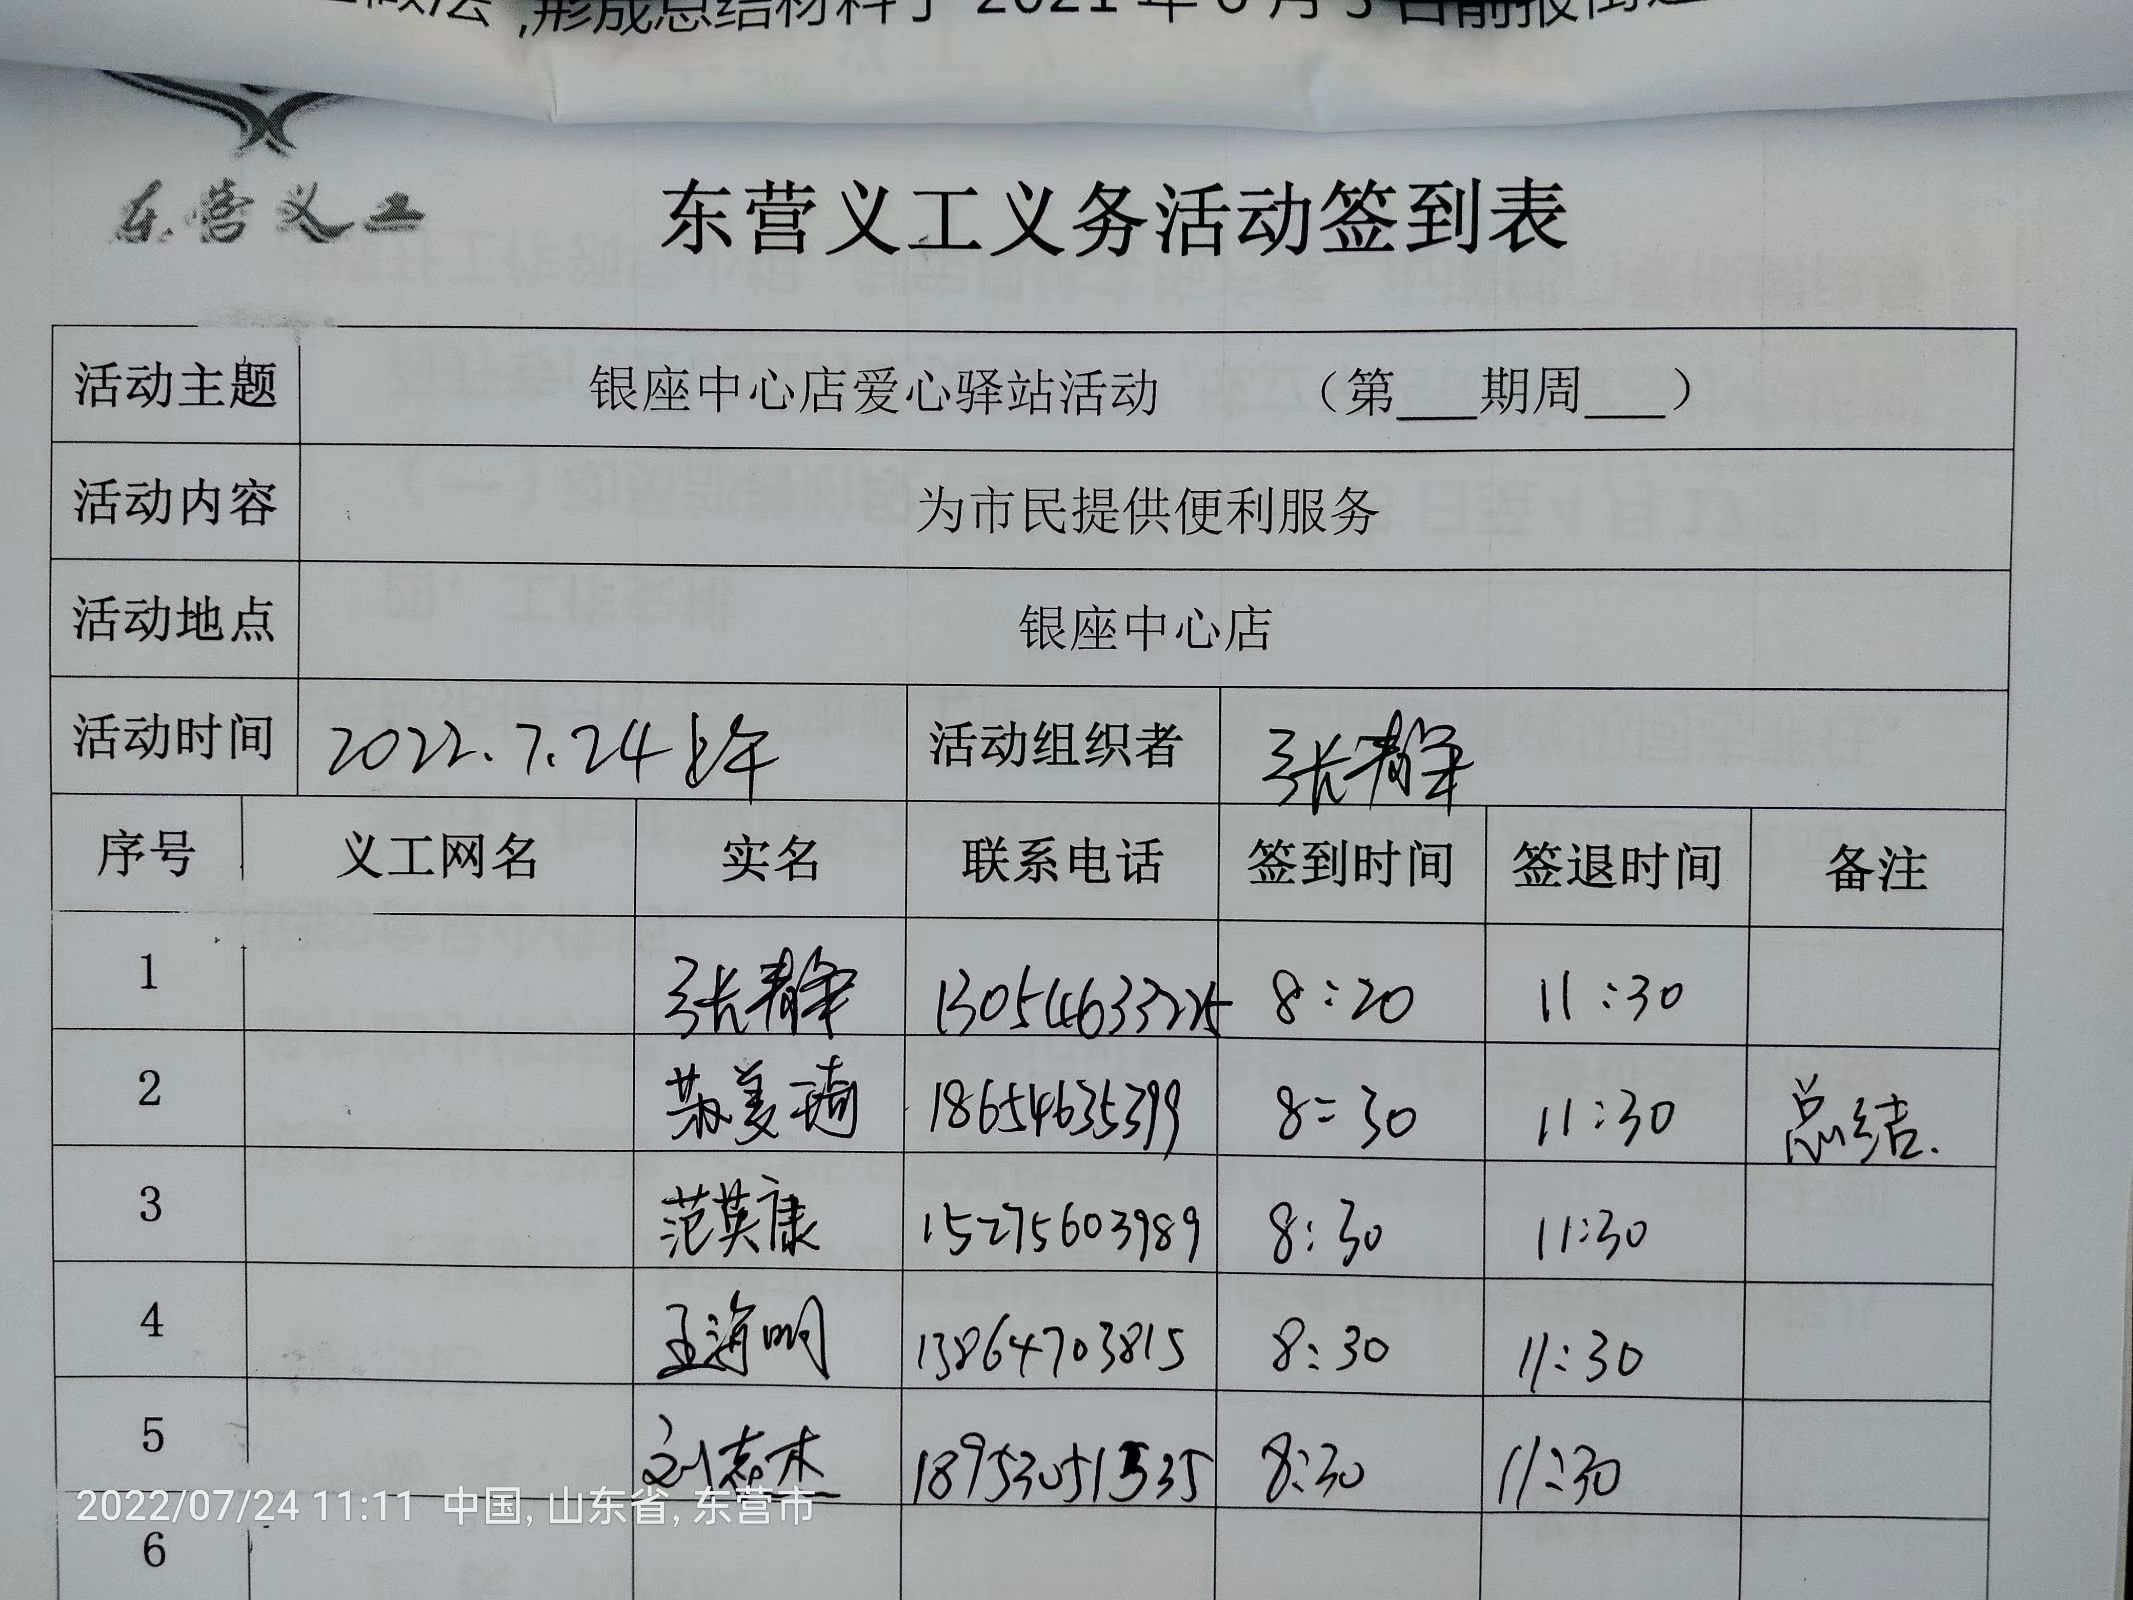 ,形成总结材料于 2021 年 6 月 5 日前报街道
东营义工
东营义工义务活动签到表
活动主题 银座中心店爱心驿站活动 （第___期周___）
活动内容 为市民提供便利服务
活动地点 银座中心店
活动时间 2022.7.24上午 活动组织者 张静
序号 义工网名 实名 联系电话 签到时间 签退时间 备注
1 张静 13054633225 8:20 11:30
2 苏美琦 18654635399 8:30 11:30 总结.
3 范英康 15275603989 8:30 11:30
4 王海明 13864703815 8:30 11:30
5 刘志杰 18953051535 8:30 11:30
2022/07/24 11:11 中国, 山东省, 东营市
6